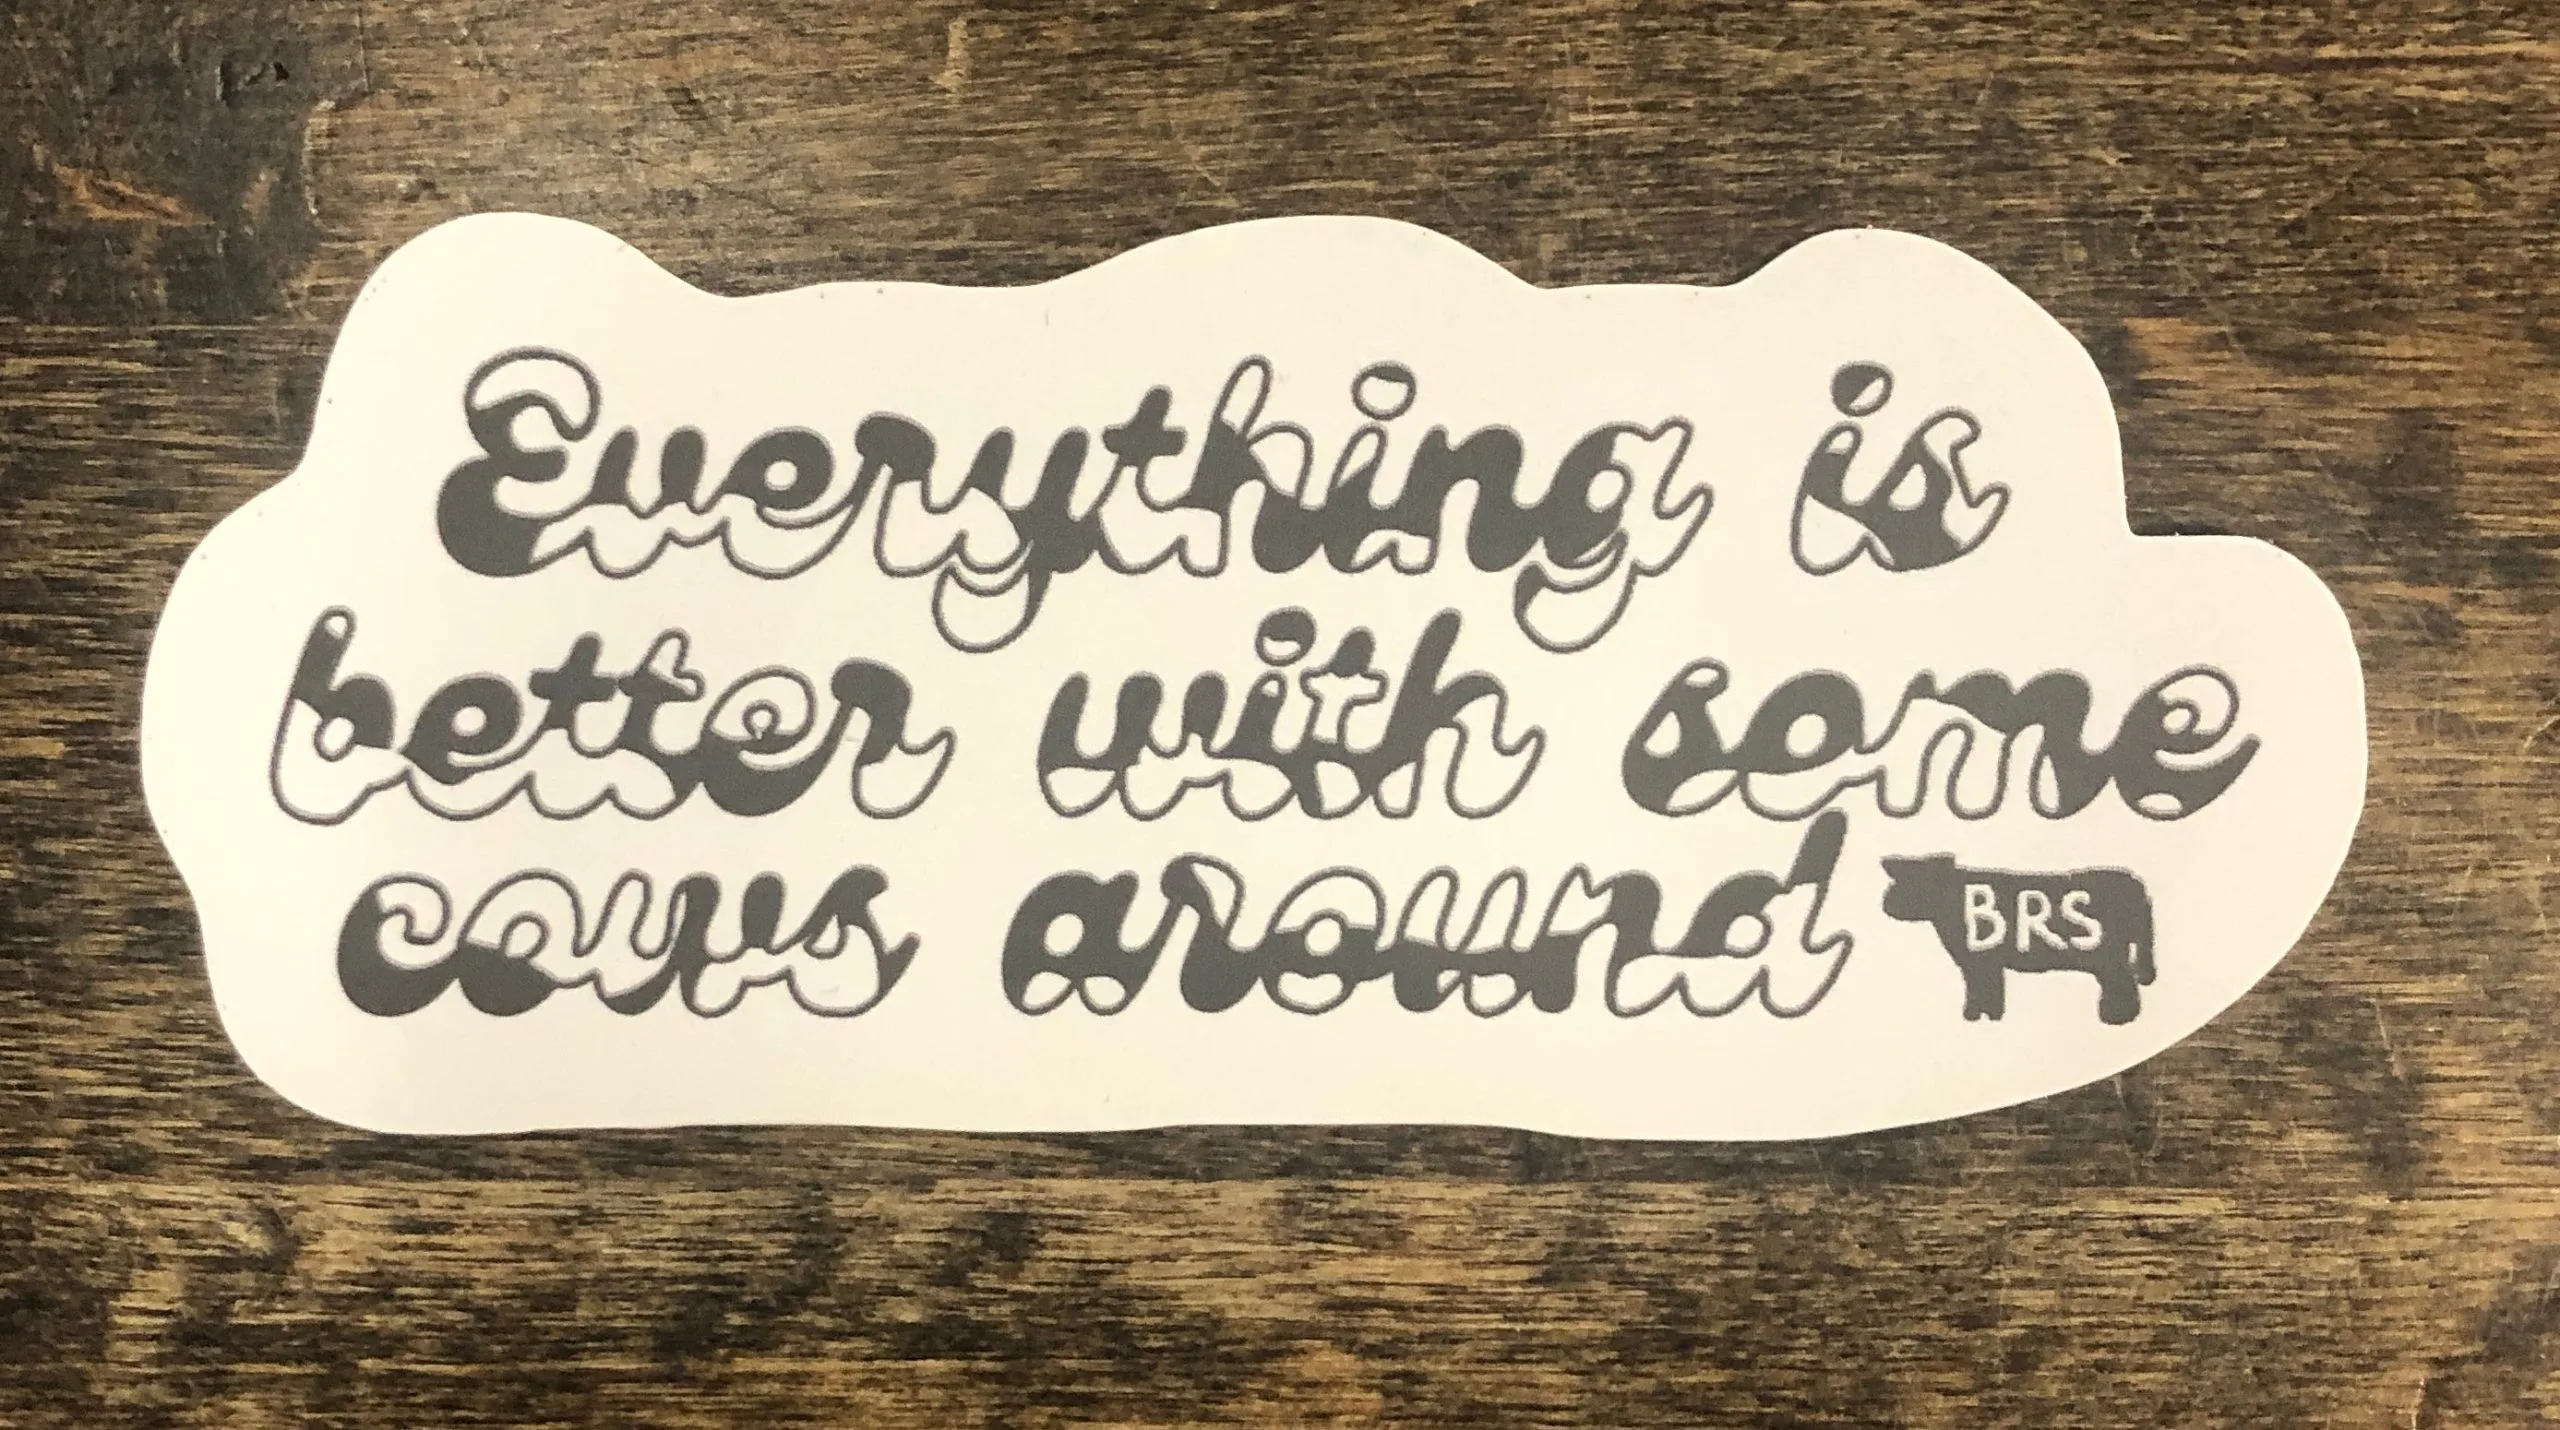 Everything is
better with some
cows around BRS